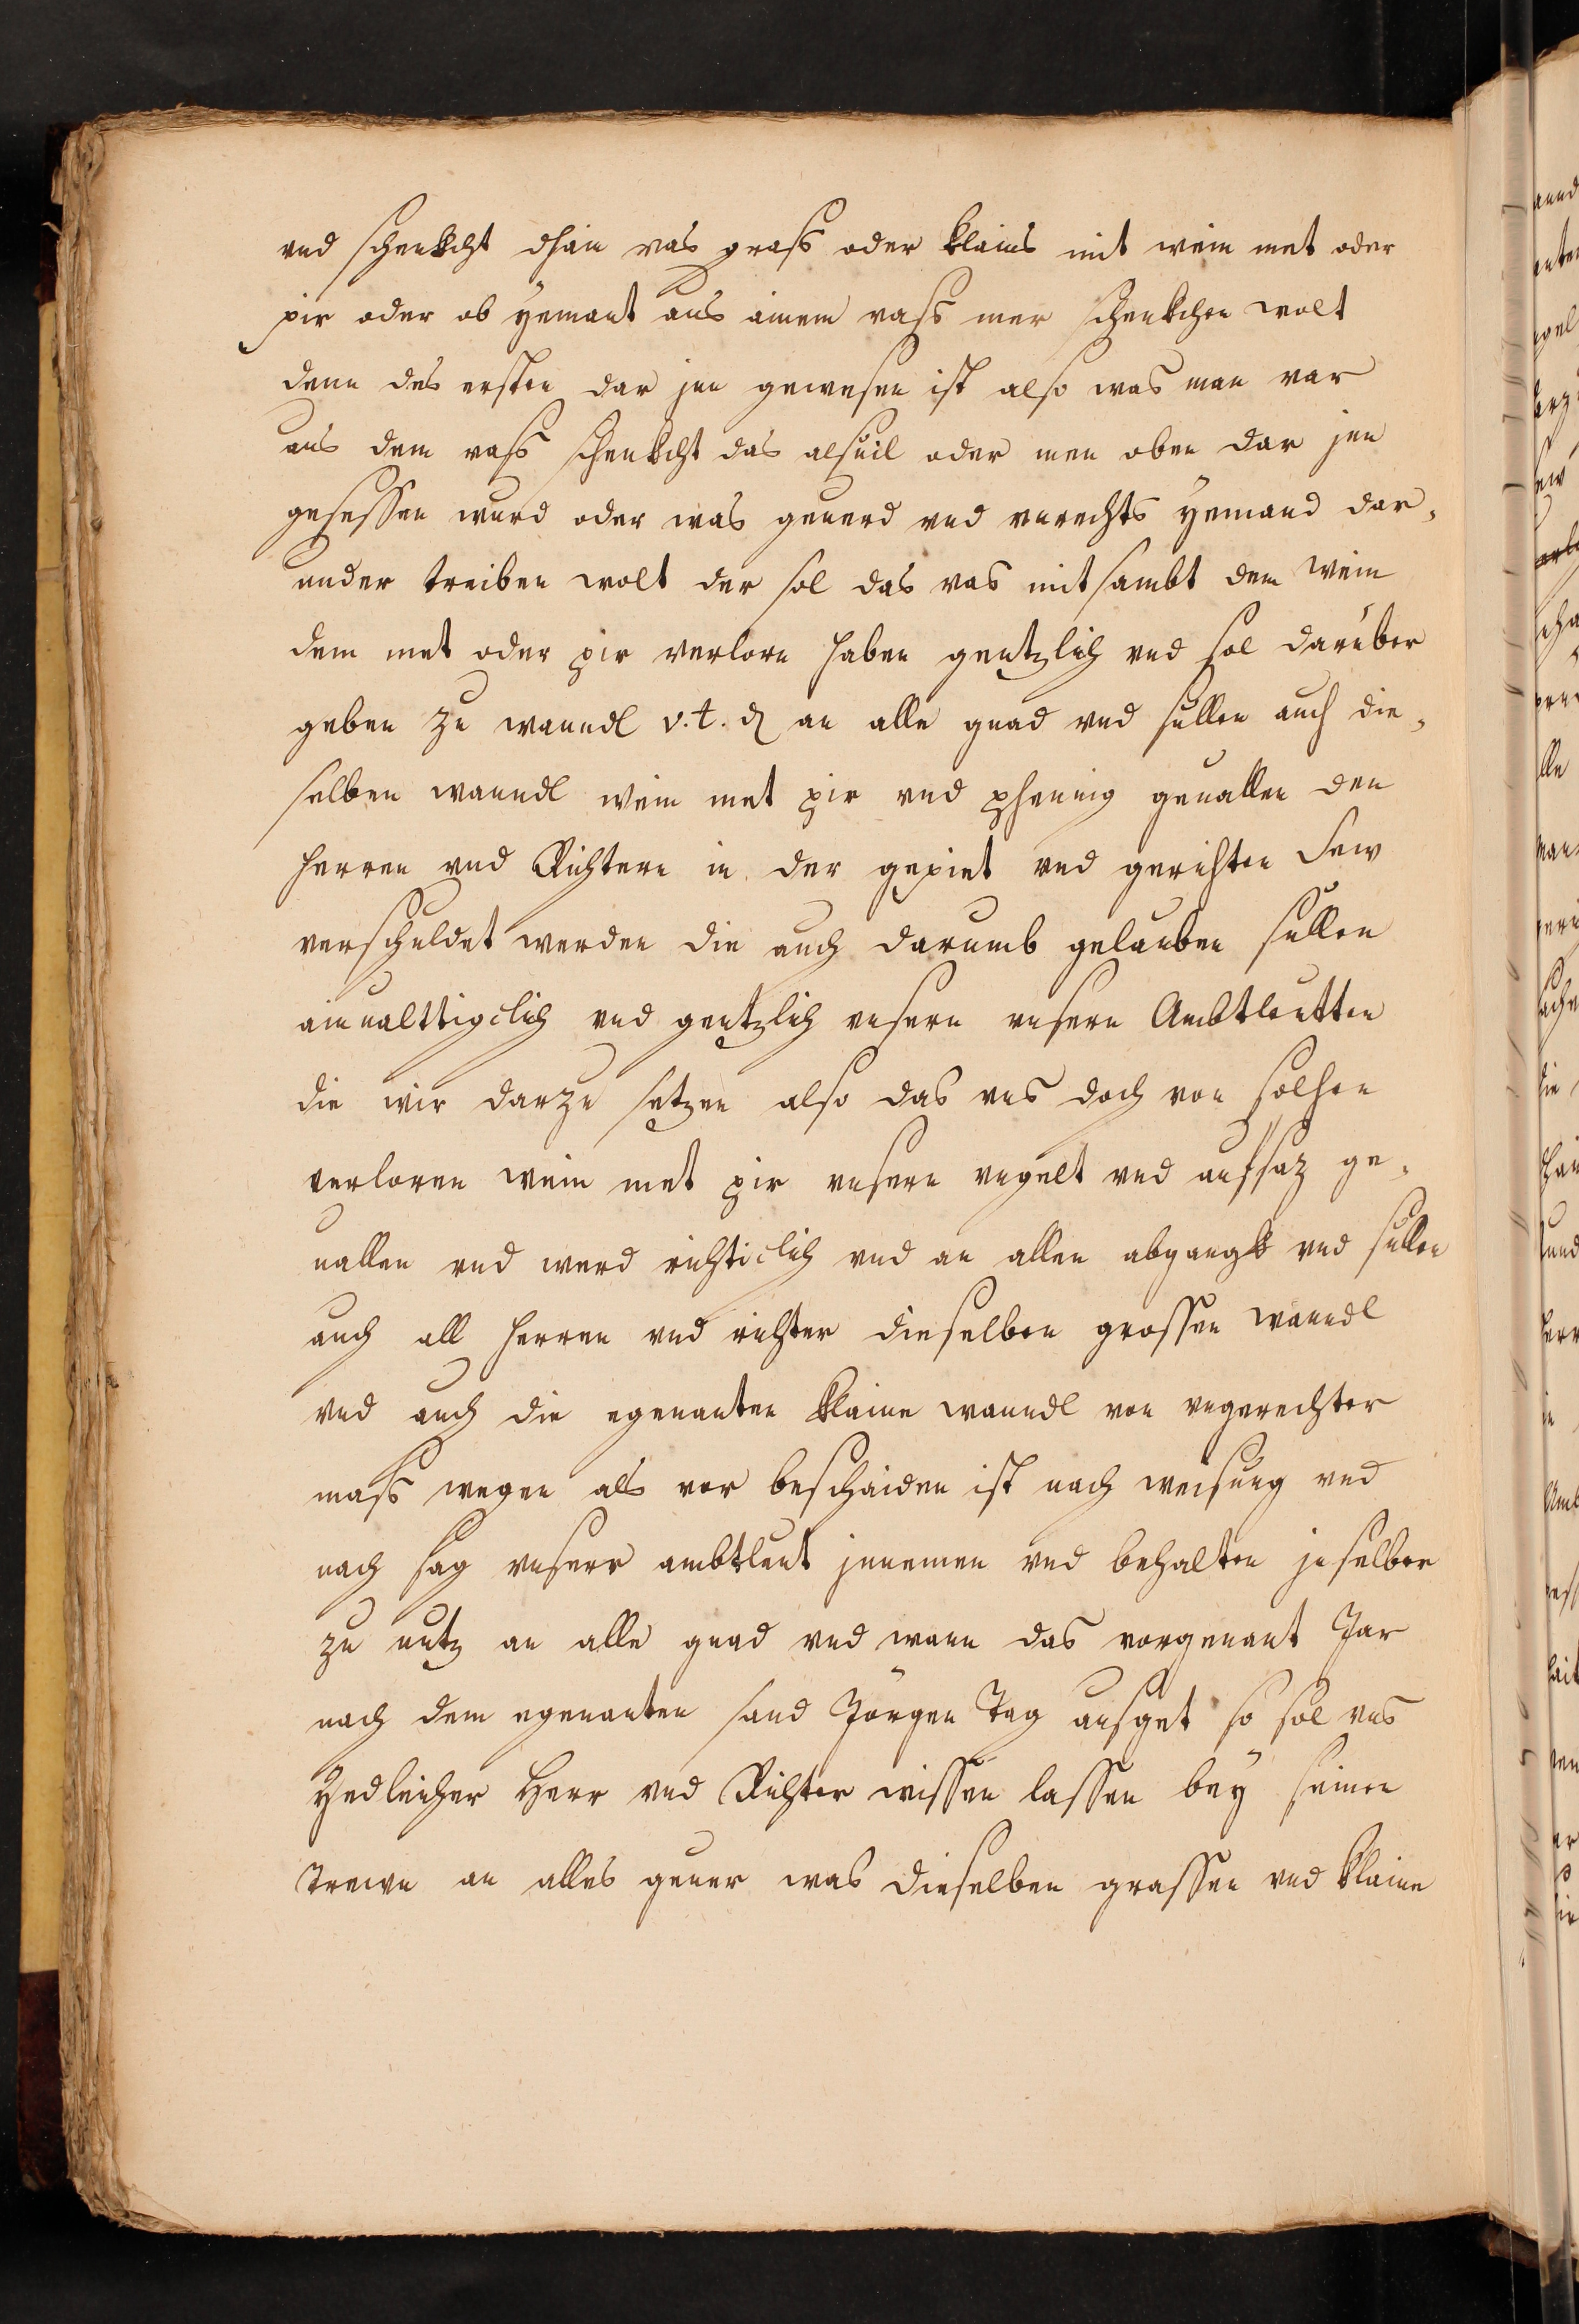 vnd schenkcht dhain vas gross oder klains mit wein met oder
pir oder ob yemant aus ainem vass mer schenkchen wolt
denn des ersten dar jnn gewesen ist also was man var
aus dem vass schenkcht das alsuil oder men oben dar jnn
gesessen wurd oder was geuerd vnd vnrechts yemand dar„
under treiben wolt der sol das vas mitsambt dem Wein
dem met oder pir verlorn haben gentzlich vnd sol darüber
geben zu wanndl v. t. ₰ an alle gnad vnd sullen auch die„
selben wanndl Wein met pir vnd phennig geuallen den
herren vnd Richtern in der gepiet vnd gerichten Sew
verschuldet werden die auch darumb gelauben sullen
ainualttigclich vnd gentzlich vnsern vnsern Ambtleutten
die wir darzu setzen also das vns doch von solhen
verloren wein met pir vnsern vngelt vnd aufsaz ge„
uallen vnd werd richticlich vnd an allen abgangk vnd sullen
auch all herren vnd richter dieselben grossen wanndl
vnd auch die egenanten klaine wanndl von vngerechter
mass wegen als vor beschaiden ist nach weisung vnd
nach sag vnserr ambtleut jnnemen vnd behalten jn selber
zu nutz an alle gnad vnd wann das vorgenant Jar
nach dem egenanten sand Jörgen Tag ausget so sol vns
Yedleicher Herr vnd Richter wissen lassen bey seinen
trewn an alles geuer was dieselben grassen vnd klaine